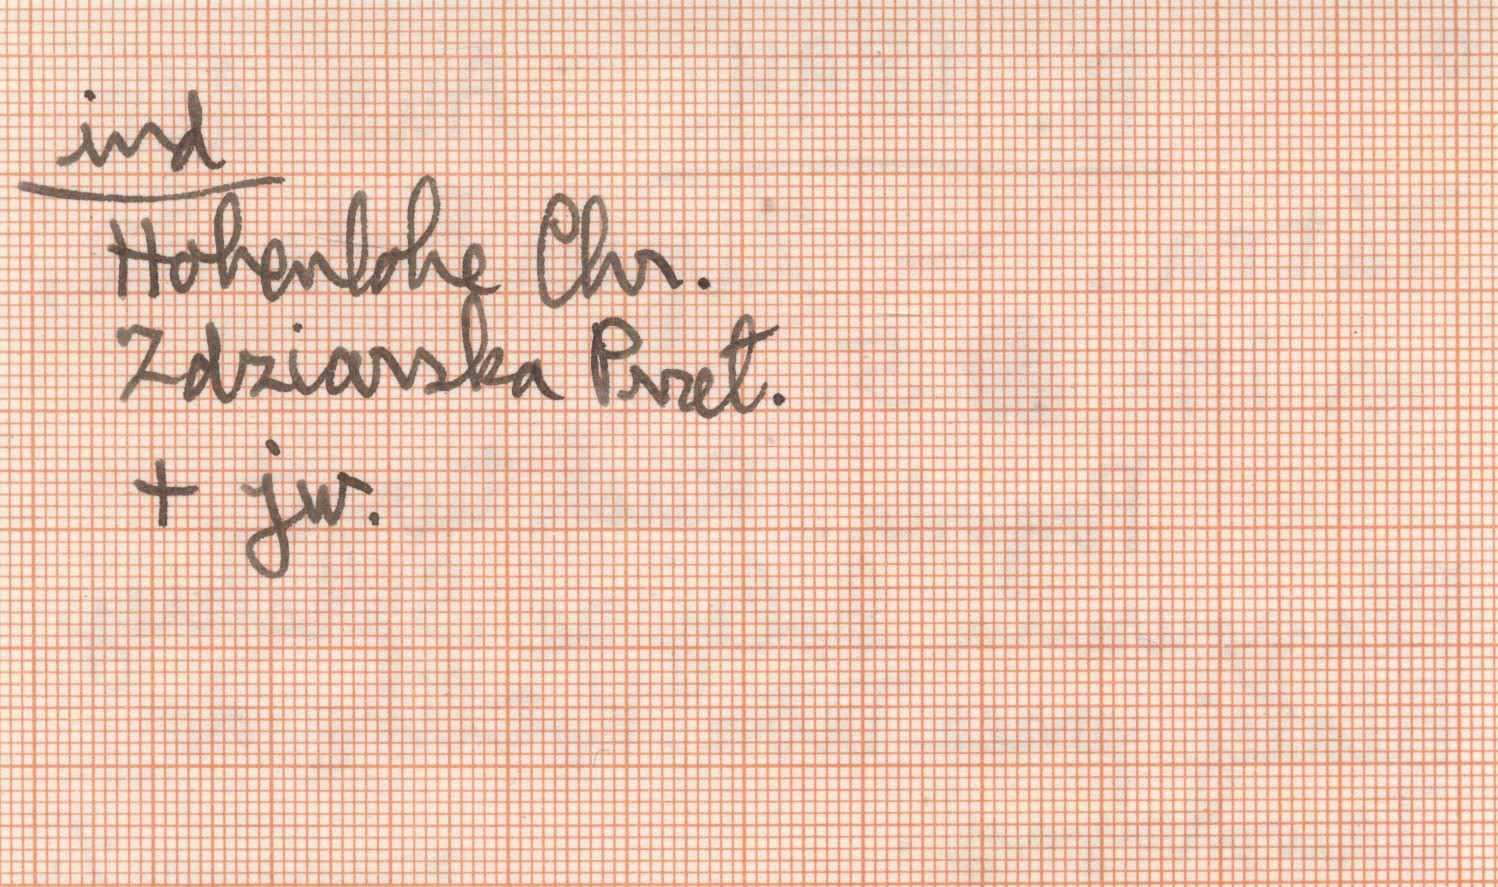 ind
Hohenlohe Chr.
Zdziarska Przet.
+ jw.